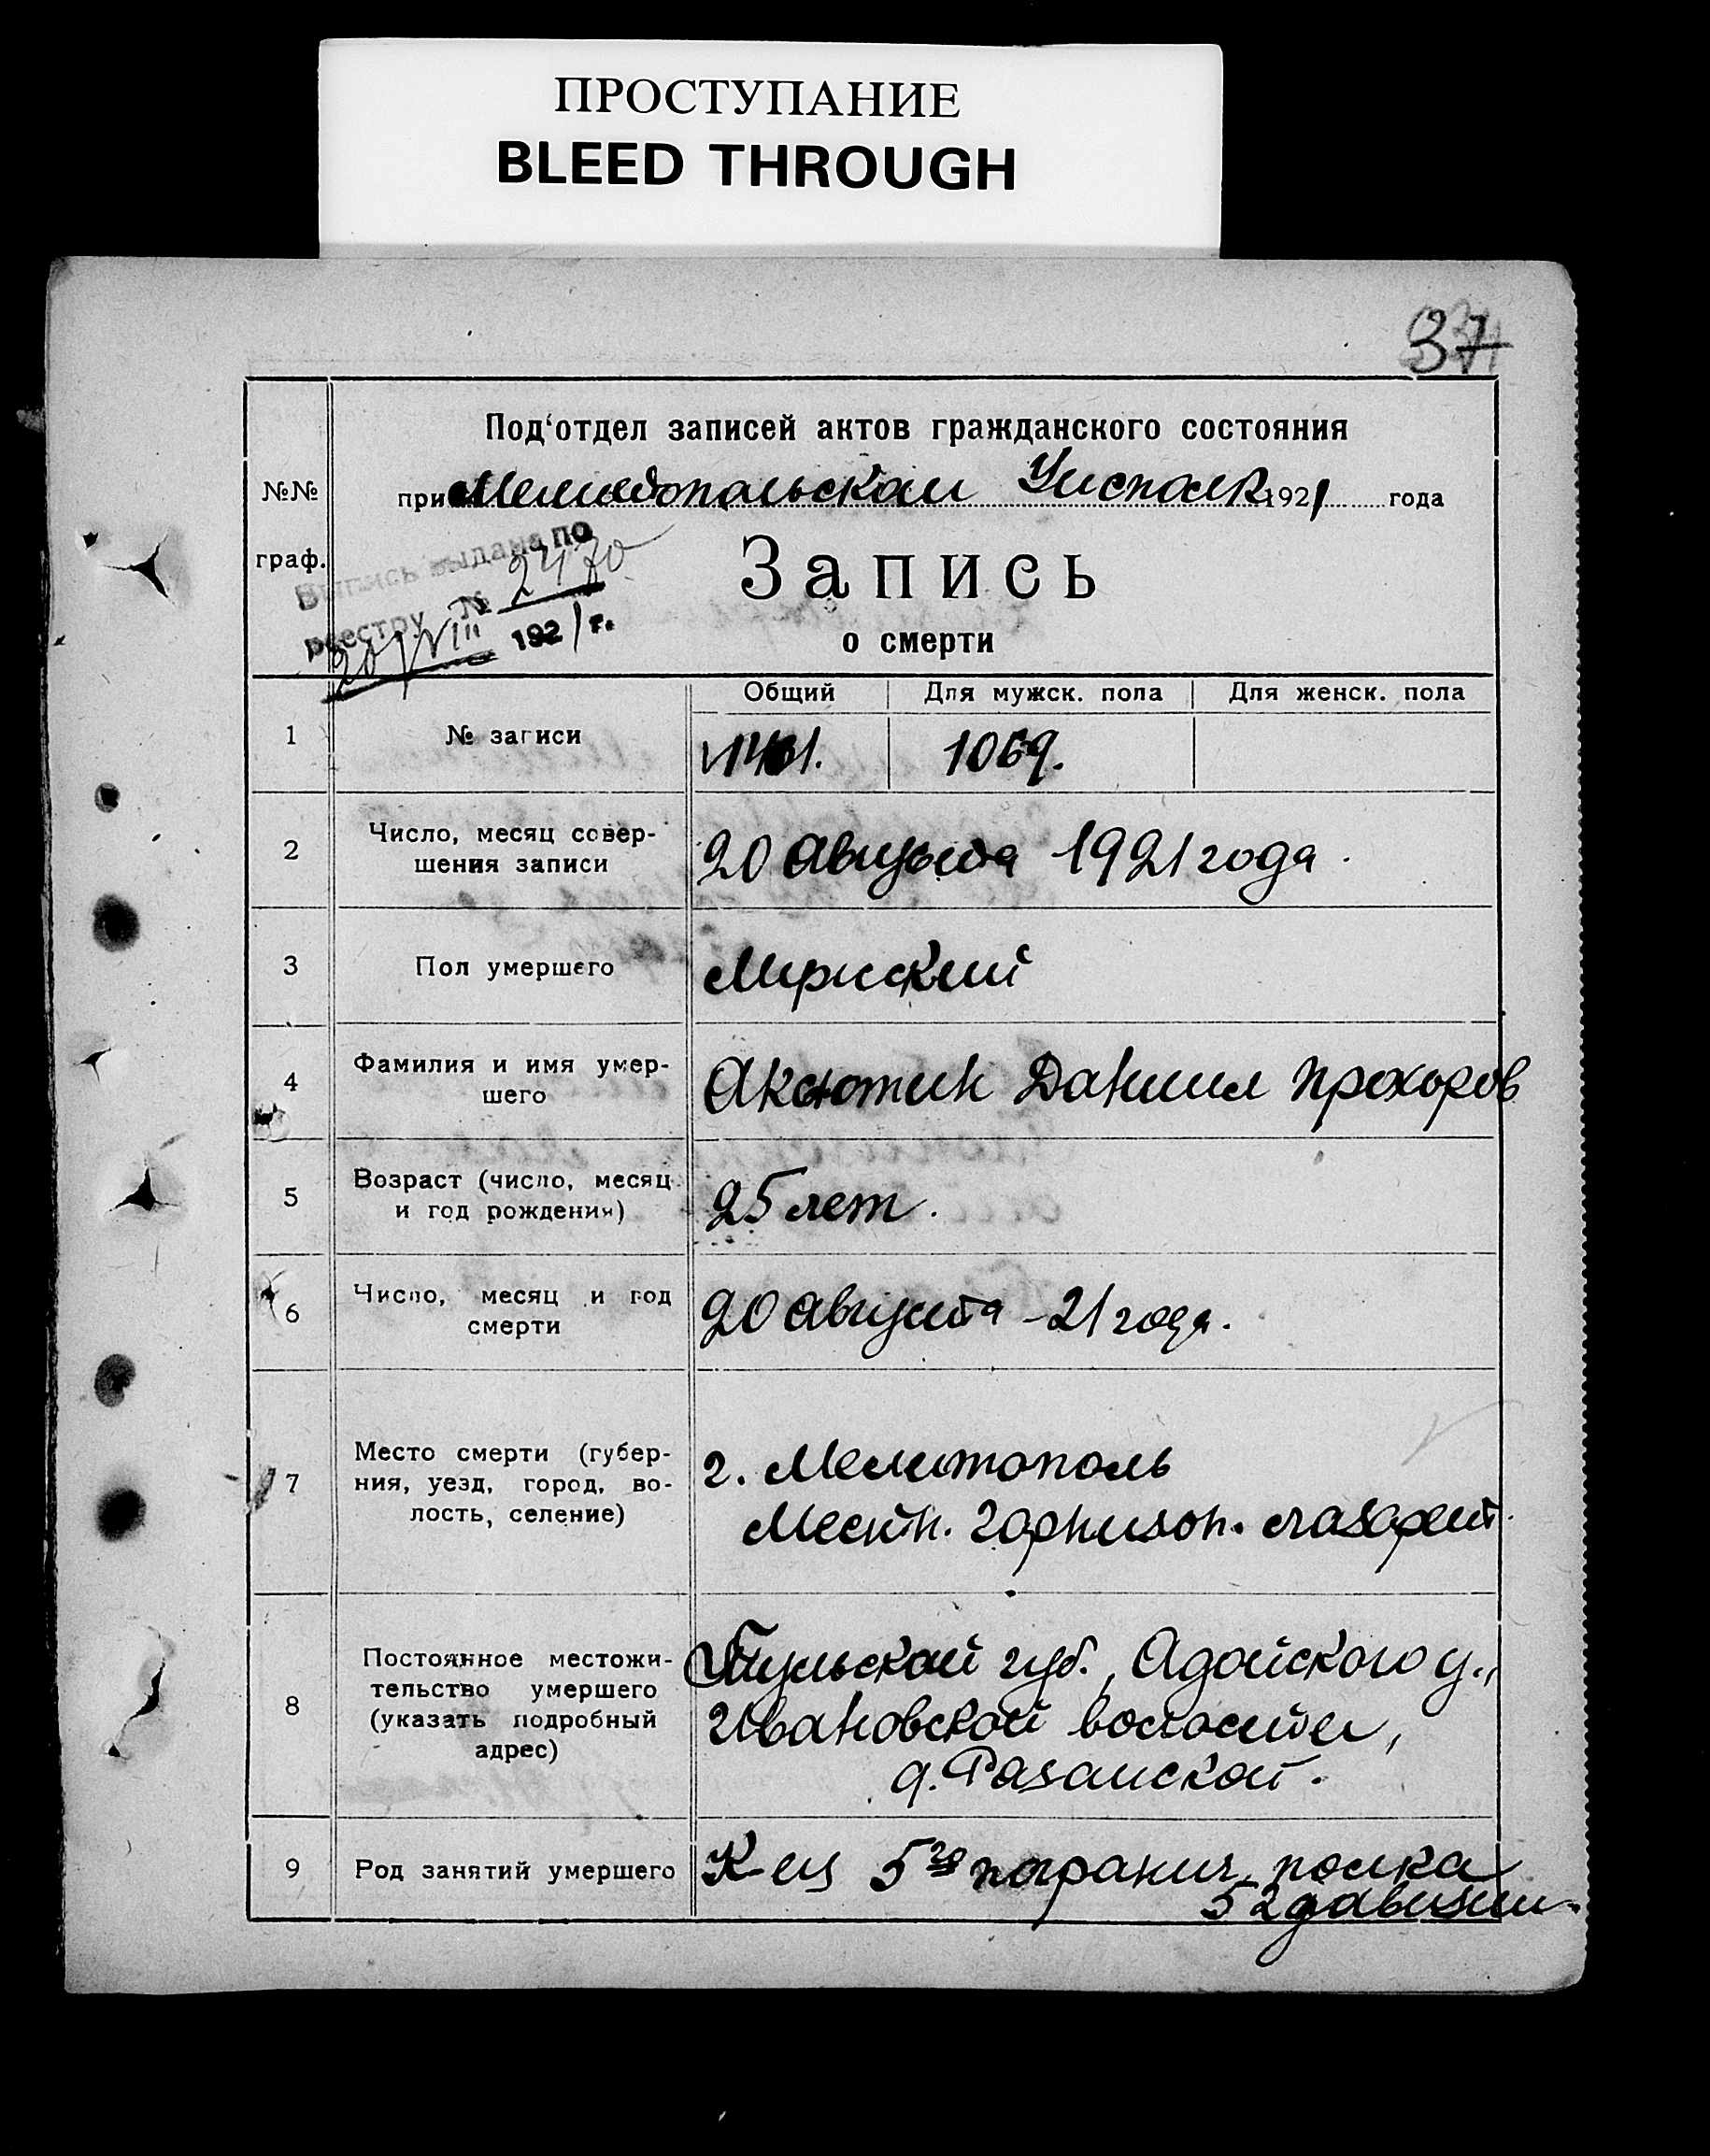 ПРОСТУПАНИЕ
BLEED THROUGH
37
Под‘отдел записей актов гражданского состояния
№№
граф.
при Мелитопольском Уисполк 1921 года
Выпись выдана по
реестру № 2470
20/VIII 1921 г.
Запись
о смерти
Общий Для мужск. пола Для женск. пола
1 № записи 1069.
2 Число, месяц совер-
шения записи
20 Августа 1921 года.
3 Пол умершего Мужский
4 Фамилия и имя умер-
шего
Аксютин Даниил Прохоров
5 Возраст (число, месяц
и год рождения)
25 лет.
6 Число, месяц и год
смерти
20 Августа -21 года.
7 Место смерти (губер-
ния, уезд, город, во-
лость, селение)
г. Мелитополь
Местн. гарнизон. лазарет.
8 Постоянное местожи-
тельство умершего
(указать подробный
адрес)
Тульской губ., Адойского у.,
Ивановской волости,
д. Разанской.
9 Род занятий умершего К-ец 5го полка
52 дивизии.